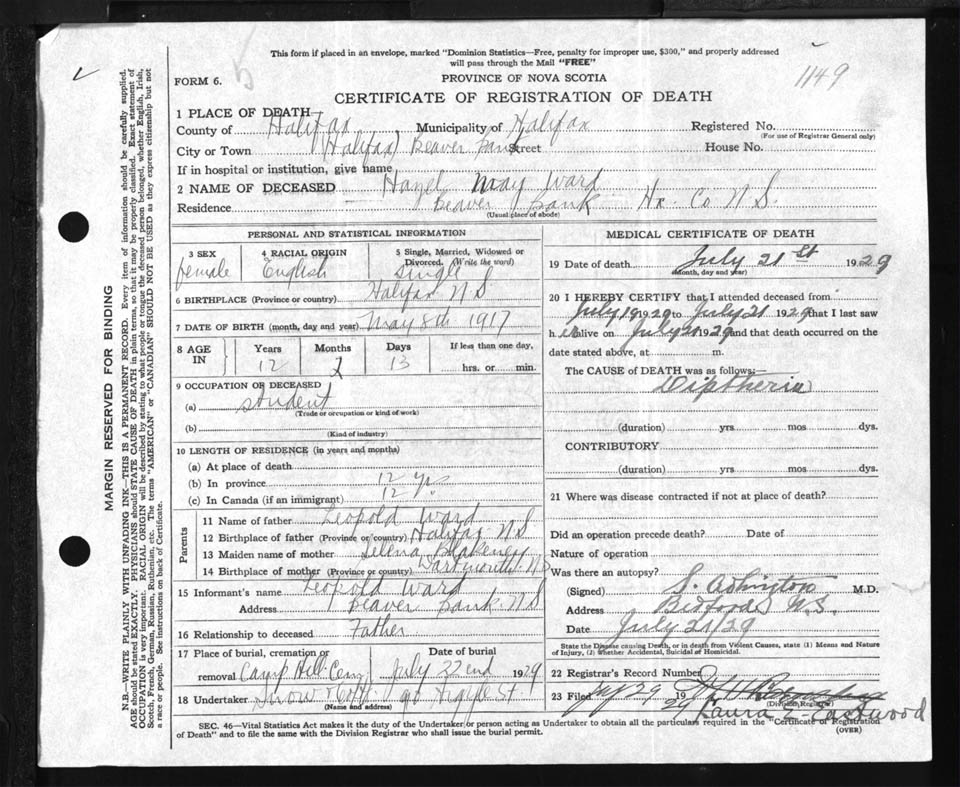 This form if placed in an envelope, marked "Dominion Statistics—Free, penalty for improper use, $300," and properly addressed
will pass through the Mail "FREE"
1149
FORM 6.
PROVINCE OF NOVA SCOTIA
CERTIFICATE OF REGISTRATION OF DEATH
1 PLACE OF DEATH
County of Halifax Municipality of Halifax Registered No.
(For use of Registrar General only)
City or Town (Halifax) Beaver Bank Street House No.
If in hospital or institution, give name
2 NAME OF DECEASED Hazel May Ward
Residence Beaver Bank Hx. Co N.S.
(Usual place of abode)
PERSONAL AND STATISTICAL INFORMATION
3 SEX 4 RACIAL ORIGIN 5 Single, Married, Widowed or
Divorced. (Write the word)
female English single
6 BIRTHPLACE (Province or country) Halifax N.S
7 DATE OF BIRTH (month, day and year) May 8th 1917
8 AGE IN Years Months Days If less than one day,
12 2 13 hrs. or min.
9 OCCUPATION OF DECEASED
(a) student
(Trade or occupation or kind of work)
(b)
(Kind of industry)
10 LENGTH OF RESIDENCE (in years and months)
(a) At place of death
(b) In province 12 yrs
(c) In Canada (if an immigrant) 12 "
Parents
11 Name of father Leopold Ward
12 Birthplace of father (Province or country) Halifax N.S
13 Maiden name of mother Selena Blakeney
14 Birthplace of mother (Province or country) Dartmouth N.S
15 Informant's name Leopold Ward
Address Beaver Bank N.S
16 Relationship to deceased Father
17 Place of burial, cremation or Date of burial
removal Camp Hill Cemy July 22nd 1929
18 Undertaker Snow 90 Argyle St
(Name and address)
MEDICAL CERTIFICATE OF DEATH
19 Date of death July 21st 1929
(Month, day and year)
20 I HEREBY CERTIFY that I attended deceased from
July 19 1929 to July 21 1929 that I last saw
h er alive on July 21 1929 and that death occurred on the
date stated above, at m.
The CAUSE OF DEATH was as follows:—
Diptheria
(duration) yrs mos dys.
CONTRIBUTORY
(duration) yrs mos dys.
21 Where was disease contracted if not at place of death?
Did an operation precede death? Date of
Nature of operation
Was there an autopsy?
(Signed) M.D.
Address Bedford N.S.
Date July 21/29
State the Disease causing Death, or in death from Violent Causes, state (1) Means and Nature
of Injury, (2) Whether Accidental, Suicidal or Homicidal.
22 Registrar's Record Number
23 Filed 29 19 29
(Division Registrar)
Laura E. Eastwood
SEC. 46—Vital Statistics Act makes it the duty of the Undertaker or person acting as Undertaker to obtain all the particulars required in the "Certificate of Registration
of Death" and to file the same with the Division Registrar who shall issue the burial permit.
(OVER)
MARGIN RESERVED FOR BINDING
N.B.—WRITE PLAINLY WITH UNFADING INK—THIS IS A PERMANENT RECORD. Every item of information should be carefully supplied.
AGE should be stated EXACTLY. PHYSICIANS should STATE CAUSE OF DEATH in plain terms, so that it may be properly classified. Exact statement of
OCCUPATION is very important. RACIAL ORIGIN will be described by stating to what people or tongue the deceased person belonged, whether English, Irish,
Scotch, French, German, Russian, Ruthenian, etc. The terms "AMERICAN" or "CANADIAN" SHOULD NOT BE USED as they express citizenship but not
a race or people. See instructions on back of Certificate.